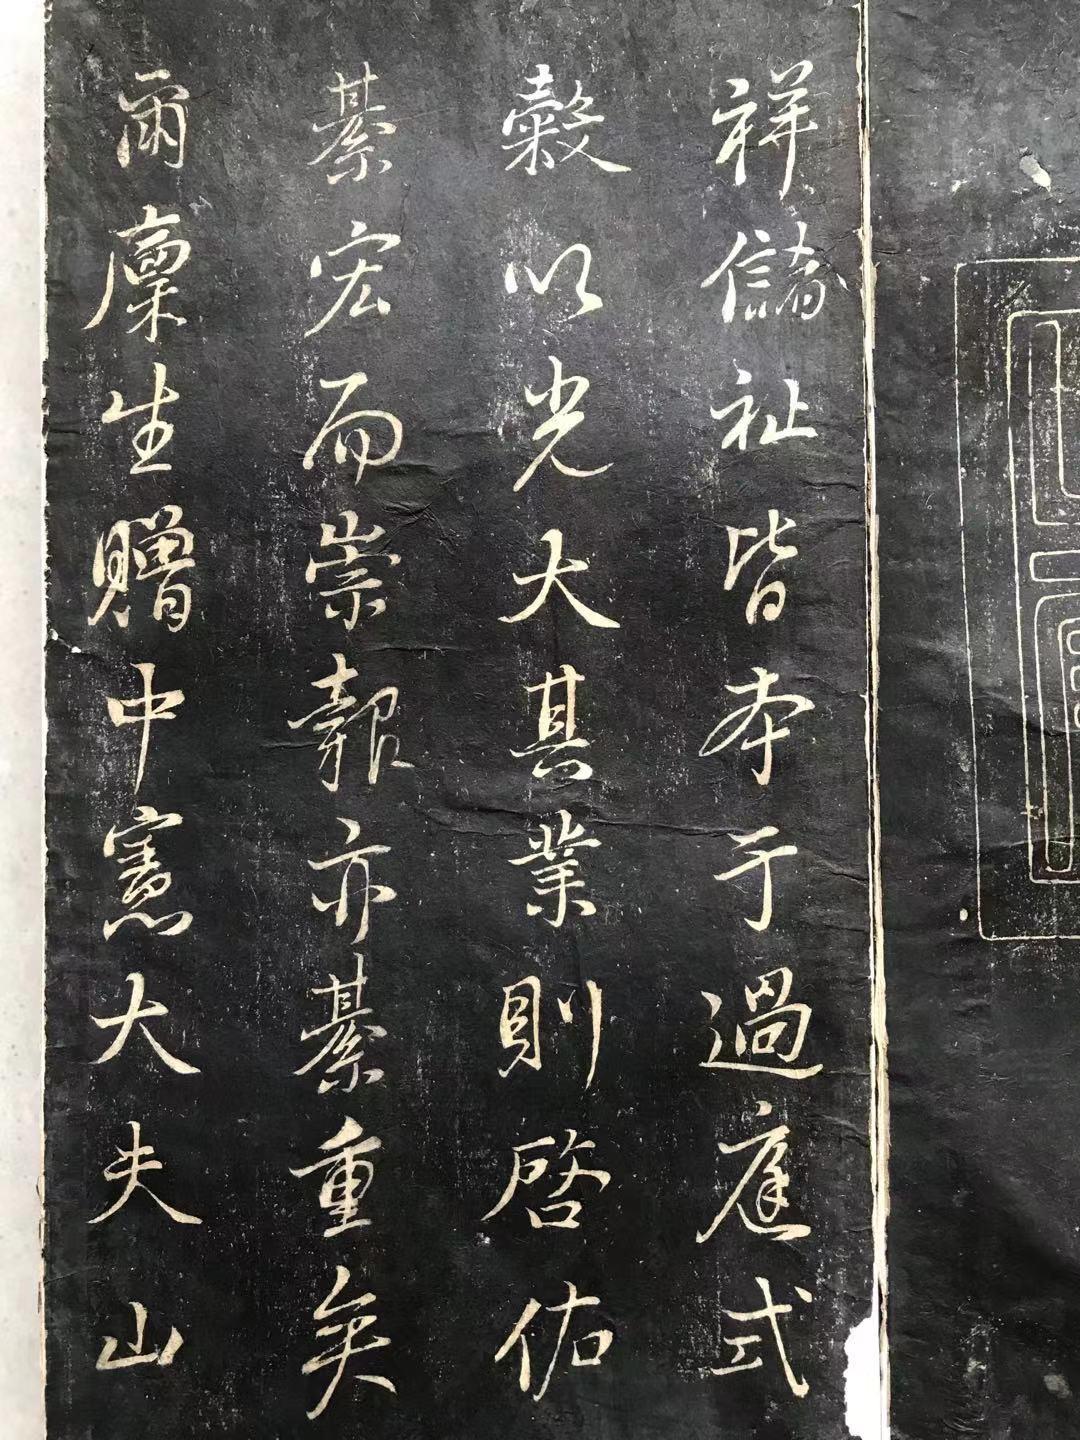 祥儲祉皆本于過庭式
穀以光大其業則啓佑
綦宏而崇報亦綦重矣
爾廩生贈中憲大夫山